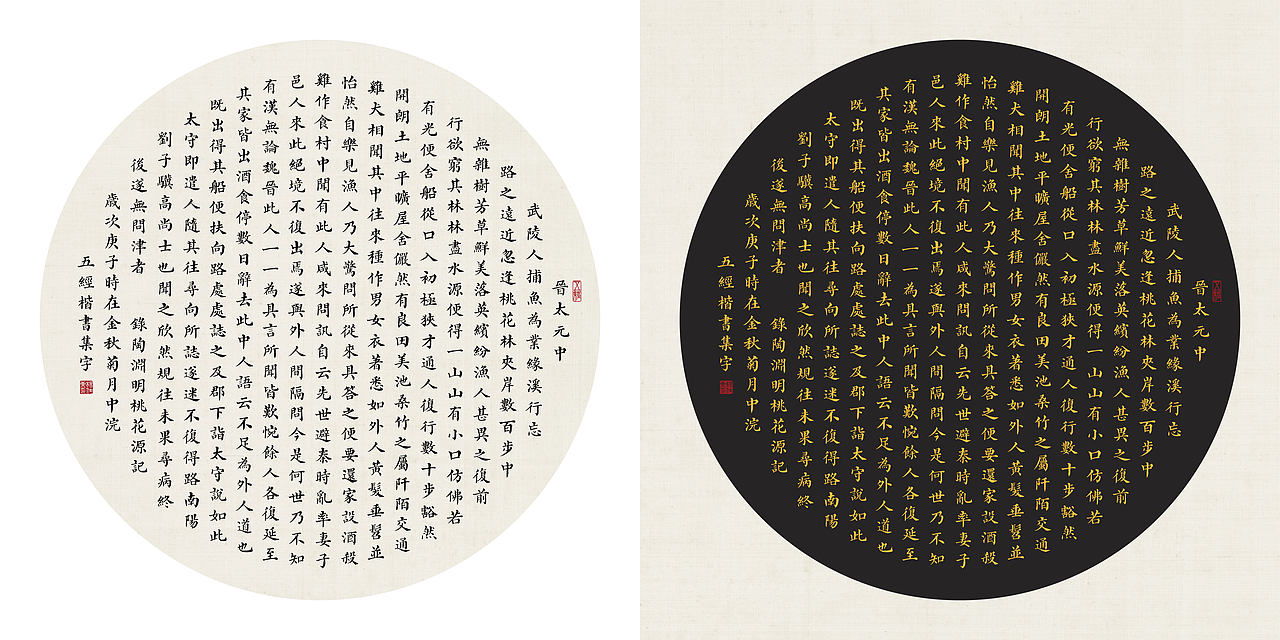 晉太元中
武陵人捕魚為業緣溪行忘
路之遠近忽逢桃花林夾岸數百步中
無雜樹芳草鮮美落英繽紛漁人甚異之復前
行欲窮其林林盡水源便得一山山有小口仿佛若
有光便舍船從口入初極狹才通人復行數十步豁然
開朗土地平曠屋舍儼然有良田美池桑竹之屬阡陌交通
雞犬相聞其中往來種作男女衣著悉如外人黃髮垂髫並
怡然自樂見漁人乃大驚問所從來具答之便要還家設酒殺
雞作食村中聞有此人咸來問訊自云先世避秦時亂率妻子
邑人來此絕境不復出焉遂與外人間隔問今是何世乃不知
有漢無論魏晉此人一一為具言所聞皆歎惋餘人各復延至
其家皆出酒食停數日辭去此中人語云不足為外人道也
既出得其船便扶向路處處誌之及郡下詣太守說如此
太守即遣人隨其往尋向所誌遂迷不復得路南陽
劉子驥高尚士也聞之欣然規往未果尋病終
後遂無問津者 錄陶淵明桃花源記
歲次庚子時在金秋菊月中浣
五經楷書集字
晉太元中
武陵人捕魚為業緣溪行忘
路之遠近忽逢桃花林夾岸數百步中
無雜樹芳草鮮美落英繽紛漁人甚異之復前
行欲窮其林林盡水源便得一山山有小口仿佛若
有光便舍船從口入初極狹才通人復行數十步豁然
開朗土地平曠屋舍儼然有良田美池桑竹之屬阡陌交通
雞犬相聞其中往來種作男女衣著悉如外人黃髮垂髫並
怡然自樂見漁人乃大驚問所從來具答之便要還家設酒殺
雞作食村中聞有此人咸來問訊自云先世避秦時亂率妻子
邑人來此絕境不復出焉遂與外人間隔問今是何世乃不知
有漢無論魏晉此人一一為具言所聞皆歎惋餘人各復延至
其家皆出酒食停數日辭去此中人語云不足為外人道也
既出得其船便扶向路處處誌之及郡下詣太守說如此
太守即遣人隨其往尋向所誌遂迷不復得路南陽
劉子驥高尚士也聞之欣然規往未果尋病終
後遂無問津者 錄陶淵明桃花源記
歲次庚子時在金秋菊月中浣
五經楷書集字